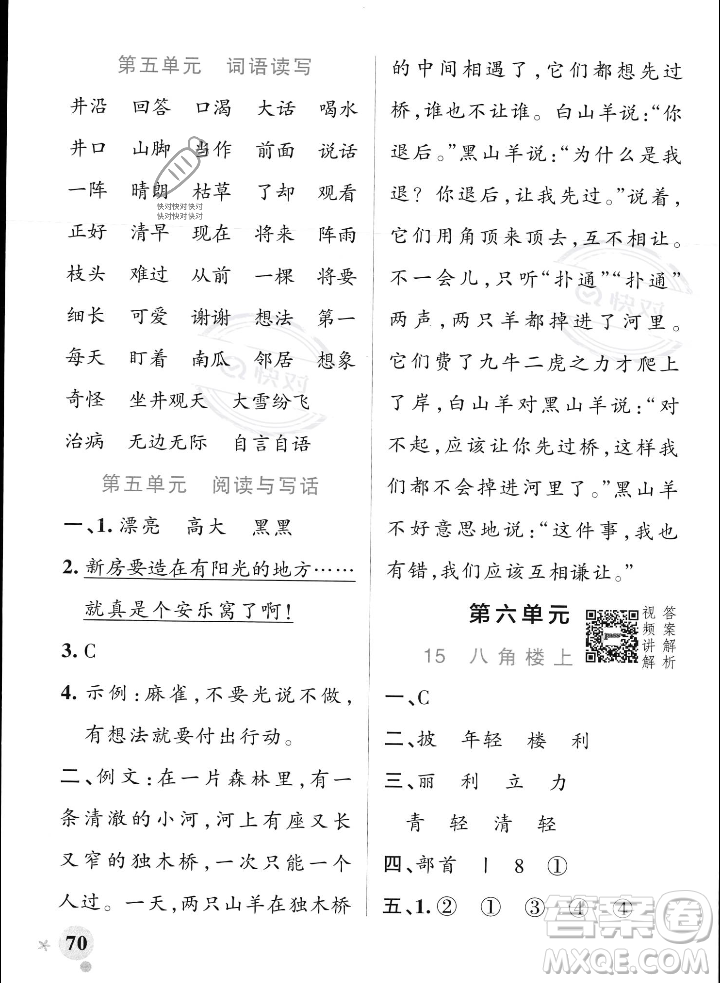 第五单元 词语读写
井沿 回答 口渴 大话 喝水
井口 山脚 当作 前面 说话
一阵 晴朗 枯草 了却 观看
快对快对快对
快对快对快对
正好 清早 现在 将来 阵雨
枝头 难过 从前 一棵 将要
细长 可爱 谢谢 想法 第一
每天 盯着 南瓜 邻居 想象
奇怪 坐井观天 大雪纷飞
治病 无边无际 自言自语
第五单元 阅读与写话
一、1. 漂亮 高大 黑黑
2. 新房要造在有阳光的地方……
就真是个安乐窝了啊！
3. C
4. 示例：麻雀，不要光说不做，
有想法就要付出行动。
二、例文：在一片森林里，有一
条清澈的小河，河上有座又长
又窄的独木桥，一次只能一个
人过。一天，两只山羊在独木桥
70
的中间相遇了，它们都想先过
桥，谁也不让谁。白山羊说：“你
退后。”黑山羊说：“为什么是我
退？你退后，让我先过。”说着，
它们用角顶来顶去，互不相让。
不一会儿，只听“扑通”“扑通”
两声，两只羊都掉进了河里。
它们费了九牛二虎之力才爬上
了岸，白山羊对黑山羊说：“对
不起，应该让你先过桥，否则我
们也不会掉进河里。”黑山羊
不好意思地说：“这件事，我也
有错，我们应该互相谦让。”
第六单元
视频讲解
答案解析
15 八角楼上
一、C
二、披 年轻 楼 利
三、丽 利 立 力
青 轻 清 轻
四、部首 丨 8 ①
五、1. ② ① ③ ④ ④
快对
快对
答案圈
MXQE.COM